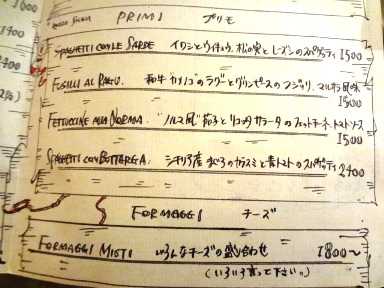 PRIMI プリモ
SPAGHETTI CON LE SARDE イワシとウイキョウ、松の実とレーズンのスパゲッティ 1500
FUSILLI AL RAGU. 和牛 のラグーと のフジッリ、マルサラ風味
1500
FETTUCCINE ALLA NORMA. "ノルマ風" 茄子とリコッタサラータのフェットチーネ トマトソース
1500
SPAGHETTI CON BOTTARGA. シチリア産 まぐろのカラスミと のスパゲッティ 2400
FORMAGGI チーズ
FORMAGGI MISTI いろんなチーズの盛り合わせ 1800～
(いろいろ言って下さい。)